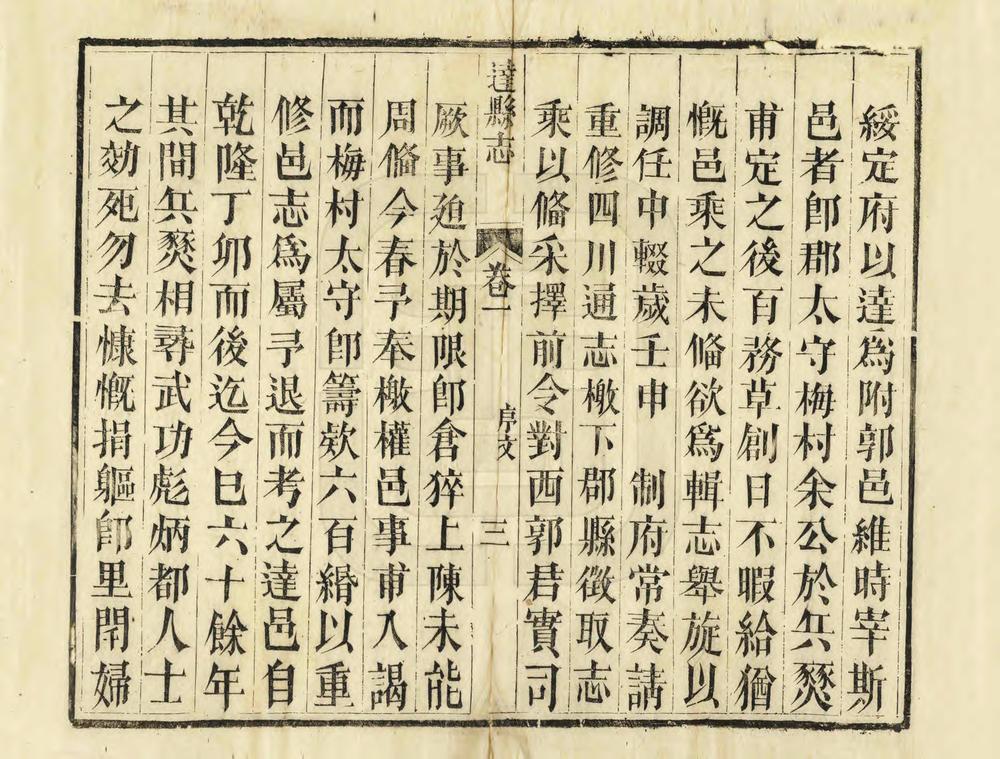 綏定府以達爲附郭邑維時宰斯
邑者卽郡太守梅村余公於兵燹
甫定之後百務草創日不暇給猶
慨邑乘之未偹欲爲輯志舉旋以
調任中輟歲壬申　制府常奏請
重修四川通志檄下郡縣徵取志
乘以偹采擇前令對西郭君實司
達縣志　卷一　序文　三
厥事廹於期限卽倉猝上陳未能
周偹今春予奉檄權邑事甫入謁
而梅村太守卽籌欵六百緡以重
修邑志爲屬予退而考之達邑自
乾隆丁卯而後迄今已六十餘年
其間兵燹相尋武功彪炳都人士
之効死勿去慷慨捐軀卽里閈婦